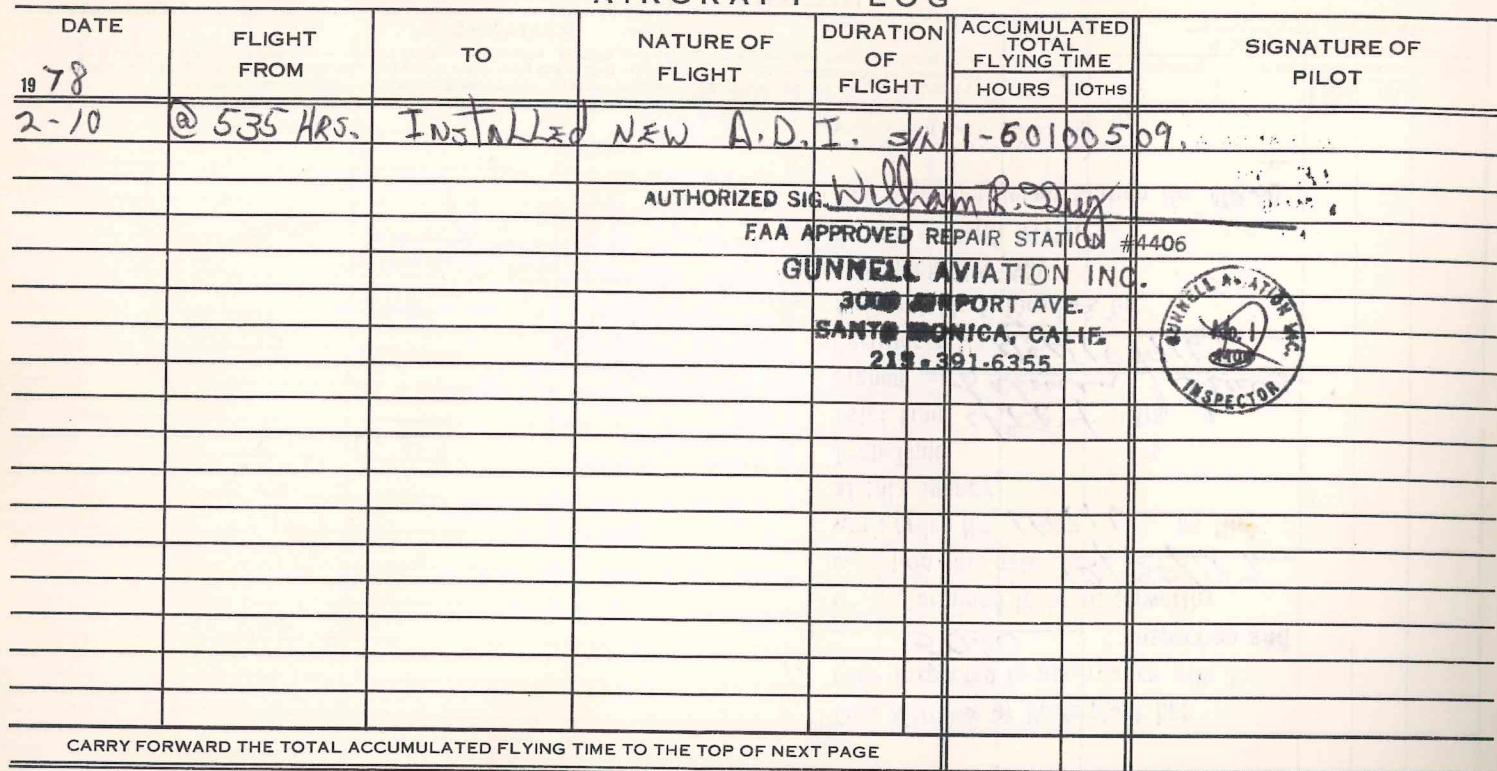 AIRCRAFT LOG
DATE
1978
FLIGHT FROM
TO
NATURE OF FLIGHT
DURATION OF FLIGHT
ACCUMULATED TOTAL FLYING TIME
HOURS
10THS
SIGNATURE OF PILOT
2-10 @ 535 HRS. INSTALLED NEW A.D.I. S/N 1-60100509.
AUTHORIZED SIG. William R.
FAA APPROVED REPAIR STATION #4406
GUNNELL AVIATION INC.
AIRPORT AVE.
SANTA MONICA, CALIF.
213.391.6355
GUNNELL AVIATION INC.
No. 1
4406
INSPECTOR
CARRY FORWARD THE TOTAL ACCUMULATED FLYING TIME TO THE TOP OF NEXT PAGE